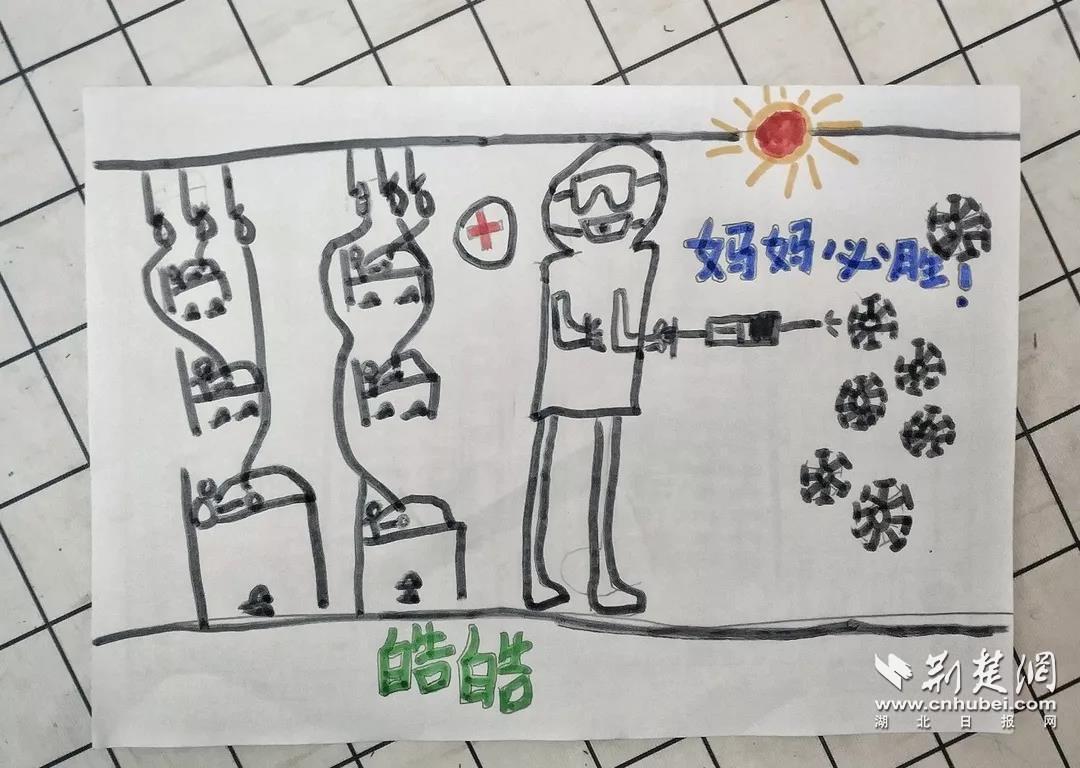 妈妈必胜!
皓皓
荆楚网
www.cnhubei.com
湖北日报网